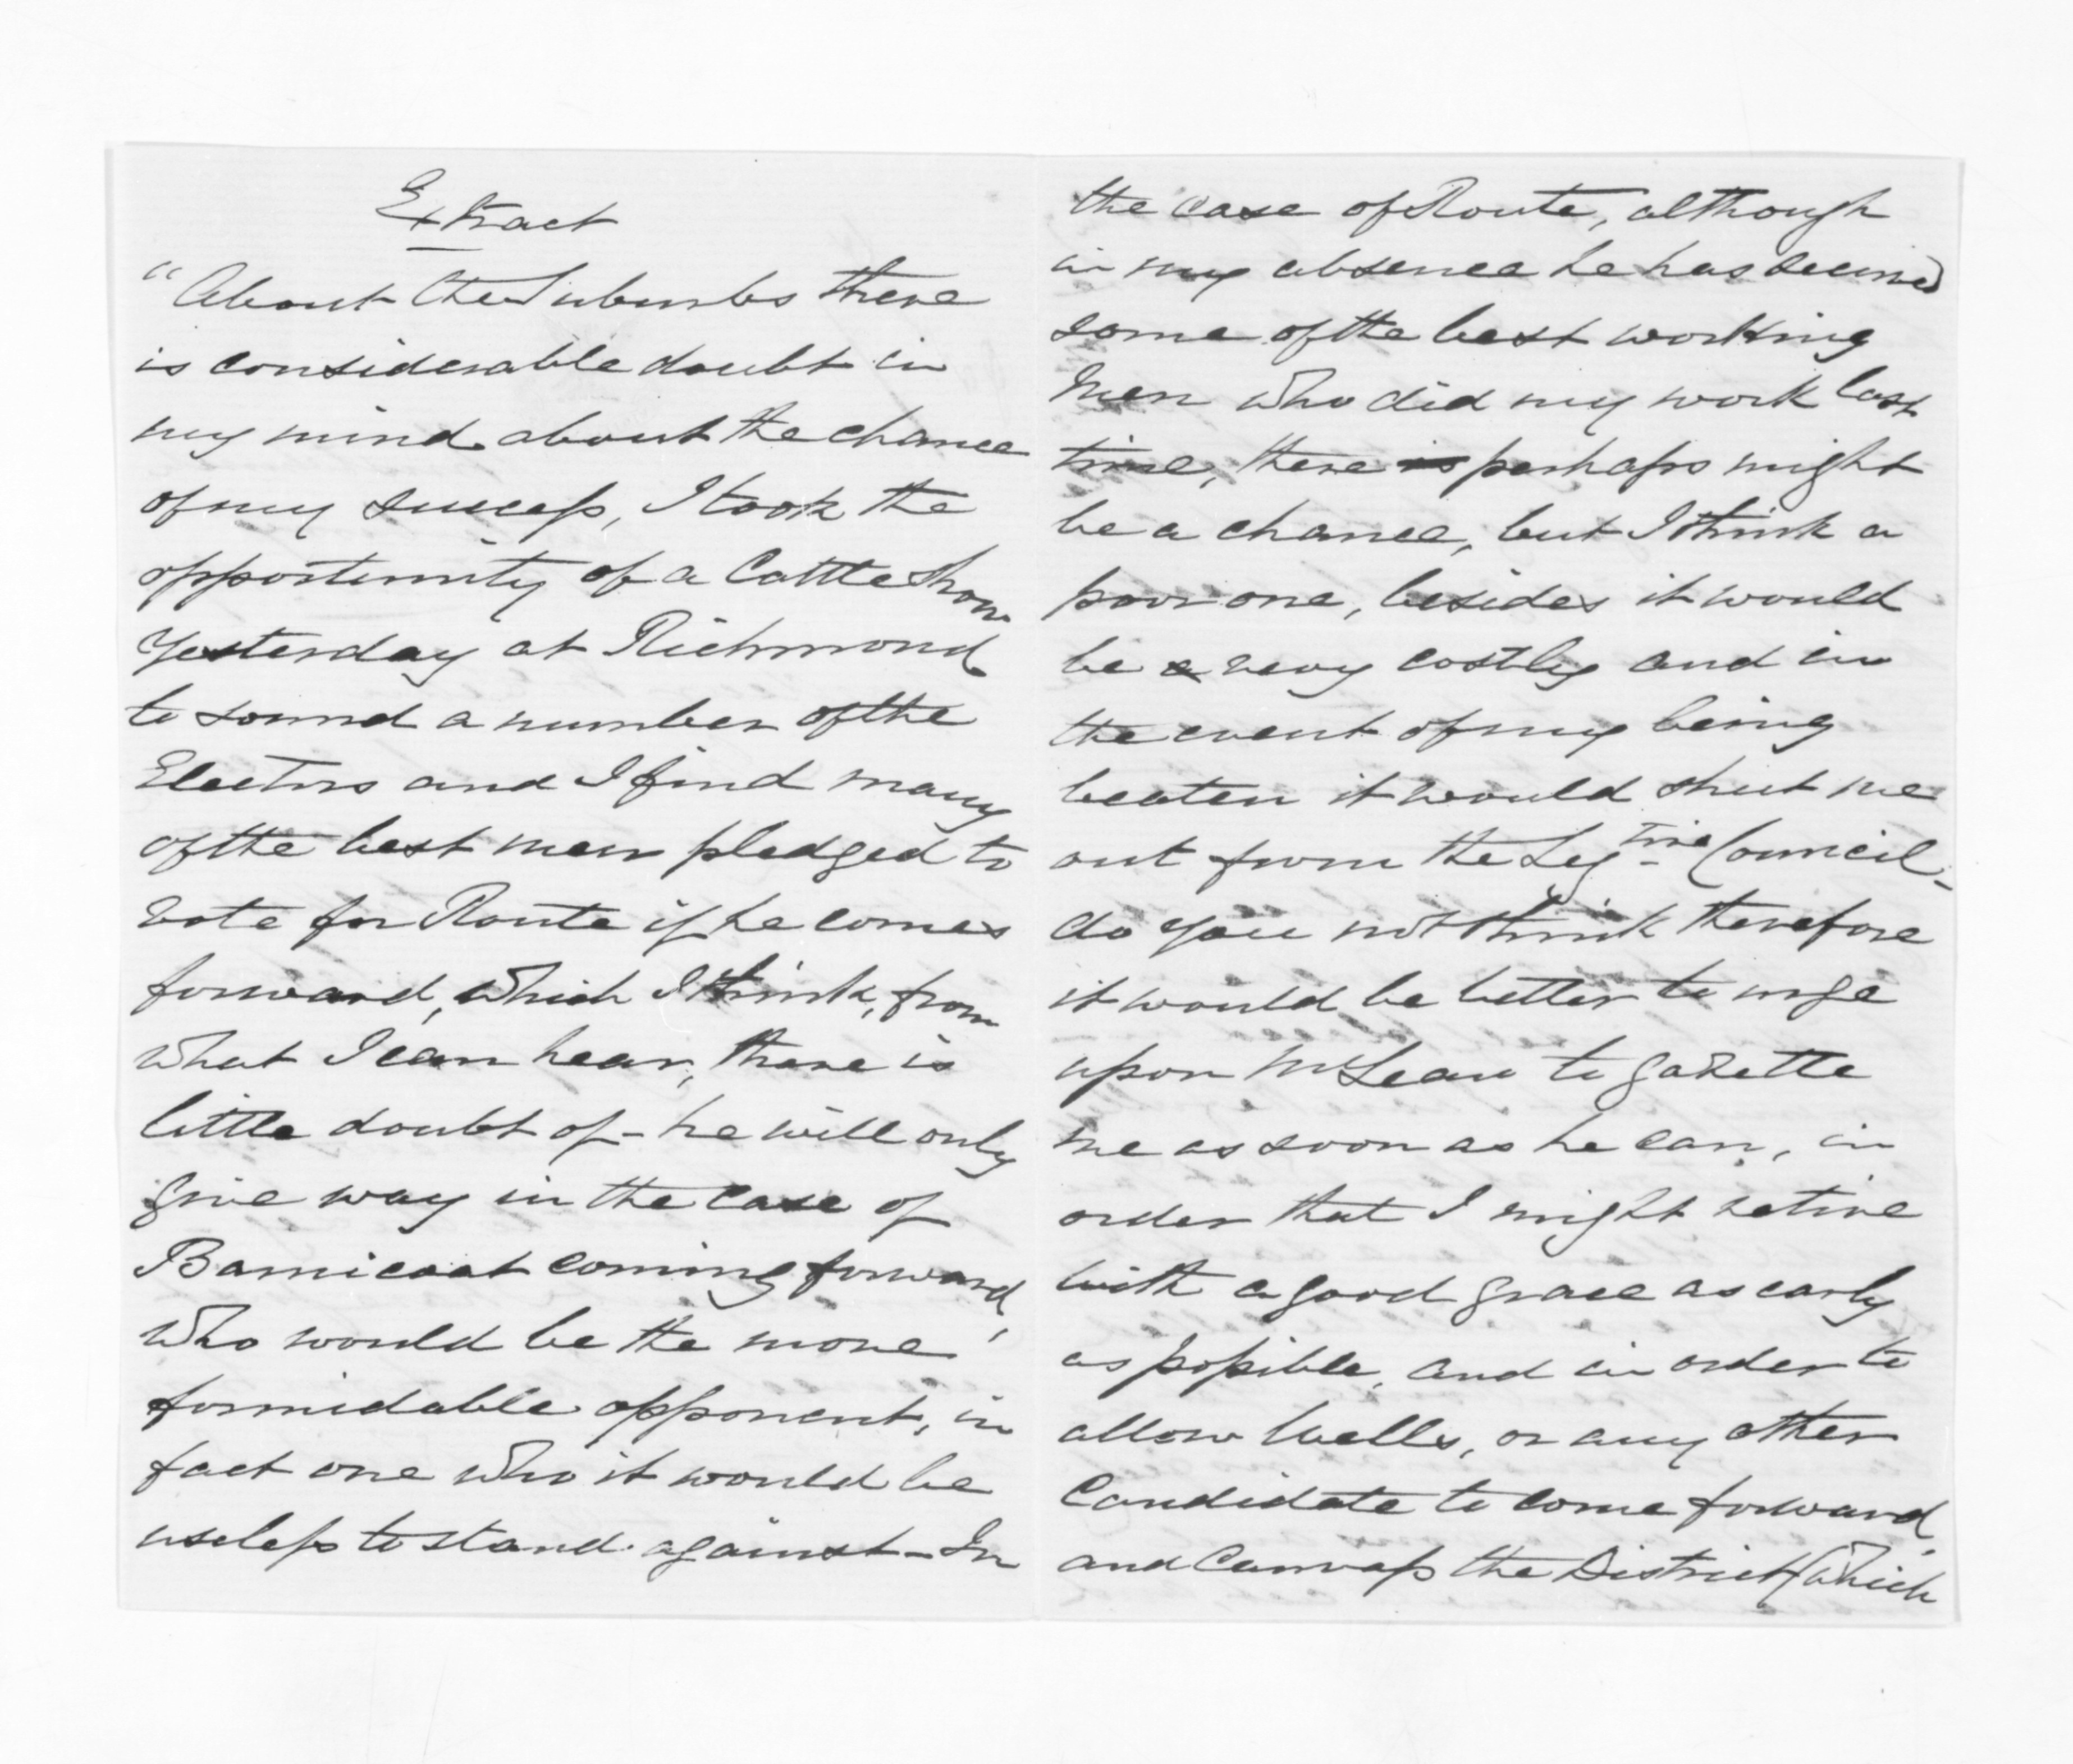 Extract
"About the Suburbs there
is considerable doubt in
my mind about the chance
of my success, I took the
opportunity of a Cattle Show
yesterday at Richmond
to sound a number of the
Electors and I find many
of the best men pledged to
vote for Route if he comes
forward, which I think, from
what I can hear, there is
little doubt of - he will only
give way in the case of
Barnicoat coming forward,
who would be the more
formidable opponent, in
fact one who it would be
useless to stand against - In
the case of Route, although
in my absence he has secured
some of the best working
men who did my work last
time, there is perhaps might
be a chance, but I think a
poor one, besides it would
be a very costly and in
the event of my being
beaten it would shut me
out from the Leg-tive Council -
do you not think therefore
it would be better to urge
upon McLean to gazette
me as soon as he can, in
order that I might retire
with a good grace as early
as possible, and in order to
allow Wells, or any other
Candidate to come forward,
and Canvass the District (which